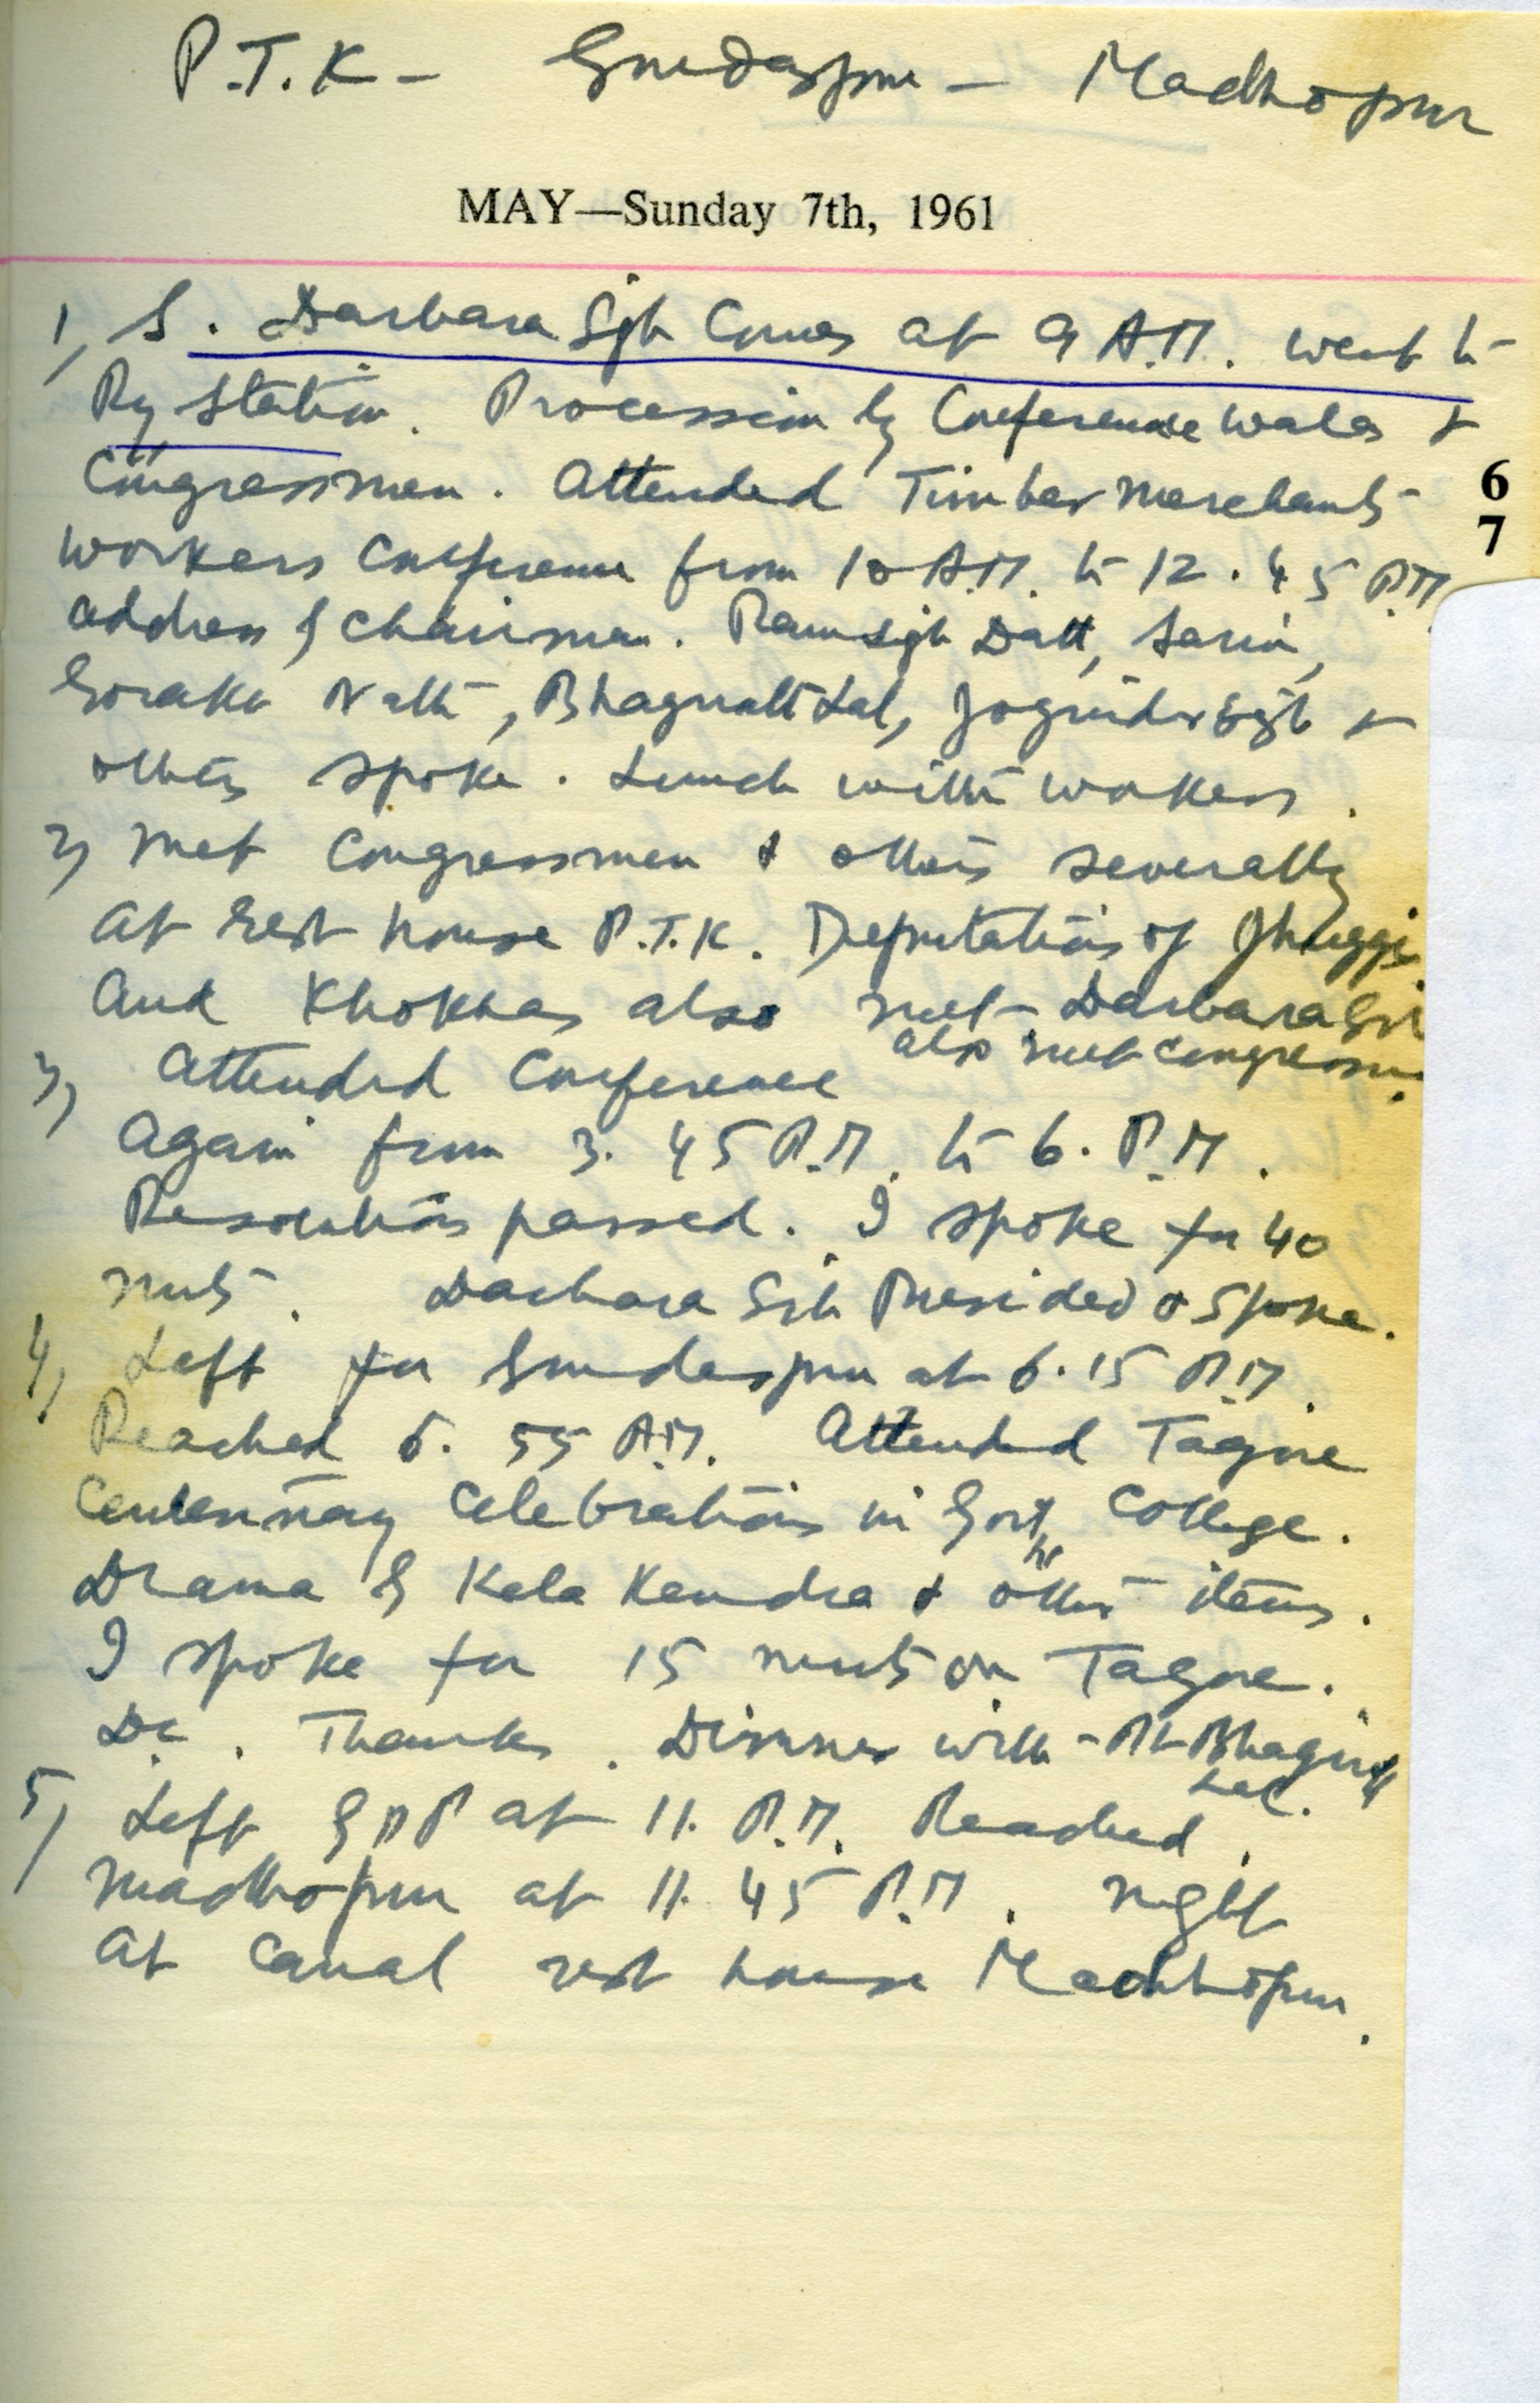 P.T.K - Gurdaspur - Madhopur
MAY—Sunday 7th, 1961
1) S. Darbara Sgh Comes at 9 A.M. went to
Ry Station. Procession by Conference walas &
Congressmen. Attended Timber Merchants
6
workers Conference from 10 A.M. to 12.45 P.M.
7
address of chairman. Ram Sigh Datt, Sarin,
Gorakh Nath, Bhagrath Lal, Joginder Sigh &
others spoke. Lunch with workers.
2) Met Congressmen & others severally
at rest house P.T.K. Deputations of Jhuggis
and Khokhas also met Darbara Sgh
also met Congressmen.
3) Attended Conference
again from 3.45 P.M. to 6. P.M.
Resolutions passed. I spoke for 40
mnts. Darbara Sgh Presided & Spoke.
4) Left for Gurdaspur at 6.15 P.M.
Reached 6.55 A.M. Attended Tagore
Centennary Celebrations in Govt College.
Drama by Kala Kendra & other items.
I spoke for 15 mnts on Tagore.
D.C. Thanks. Dinner with Pt Bhagirath
Lal.
5) Left GDP at 11. P.M. Reached
Madhopur at 11.45 P.M. night
at Canal rest house Madhopur.